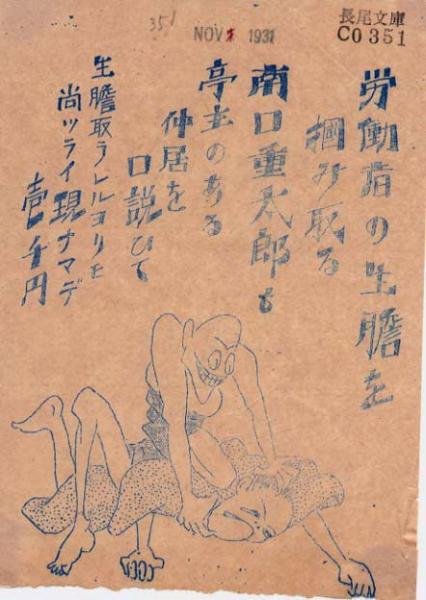 長尾文庫
CO351
351
NOV 1931
労働者の生膽を
掴み取る
南口重太郎も
亭主のある
仲居を
口説ひて
生膽取ラレルヨリモ
尚ツライ現ナマデ
壱千円